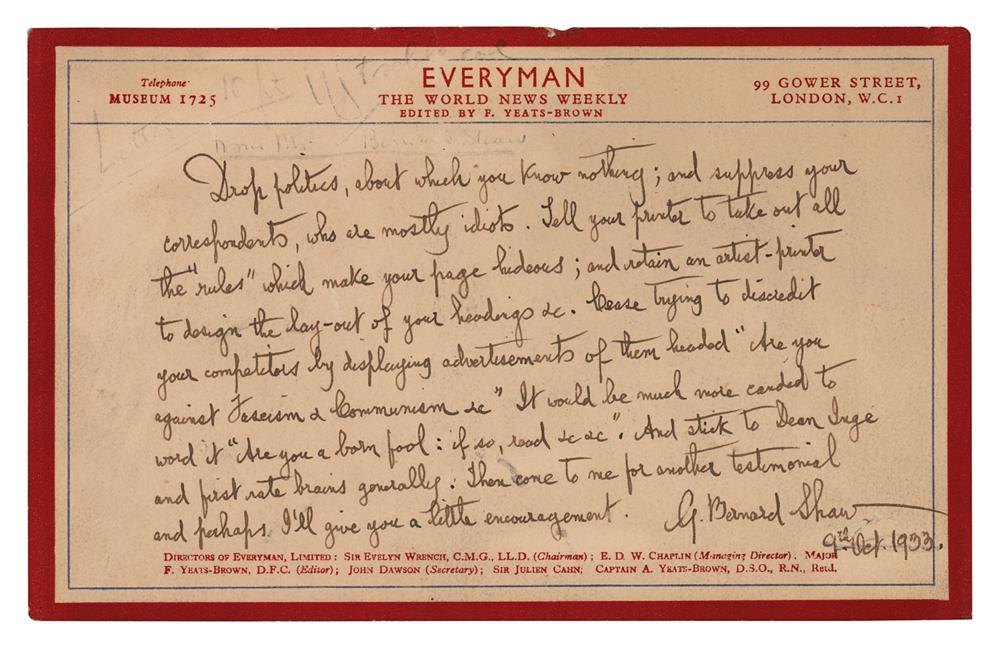 Telephone
MUSEUM 1725
EVERYMAN
THE WORLD NEWS WEEKLY
EDITED BY F. YEATS-BROWN
99 GOWER STREET,
LONDON, W.C.1
Bernard Shaw
Drop politics, about which you know nothing; and suppress your
correspondents, who are mostly idiots. Tell your printer to take out all
the "rules" which make your page hideous; and retain an artist-printer
to design the lay-out of your headings &c. Cease trying to discredit
your competitors by displaying advertisements of them headed "Are you
against Fascism & Communism &c" It would be much more candid to
word it "Are you a born fool: if so, read &c &c". And stick to Dean Inge
and first rate brains generally. Then come to me for another testimonial
and perhaps I'll give you a little encouragement. G. Bernard Shaw
9th Oct. 1933.
DIRECTORS OF EVERYMAN, LIMITED: SIR EVELYN WRENCH, C.M.G., LL.D. (Chairman); E. D. W. CHAPLIN (Managing Director); MAJOR
F. YEATS-BROWN, D.F.C. (Editor); JOHN DAWSON (Secretary); SIR JULIEN CAHN; CAPTAIN A. YEATS-BROWN, D.S.O., R.N., Retd.